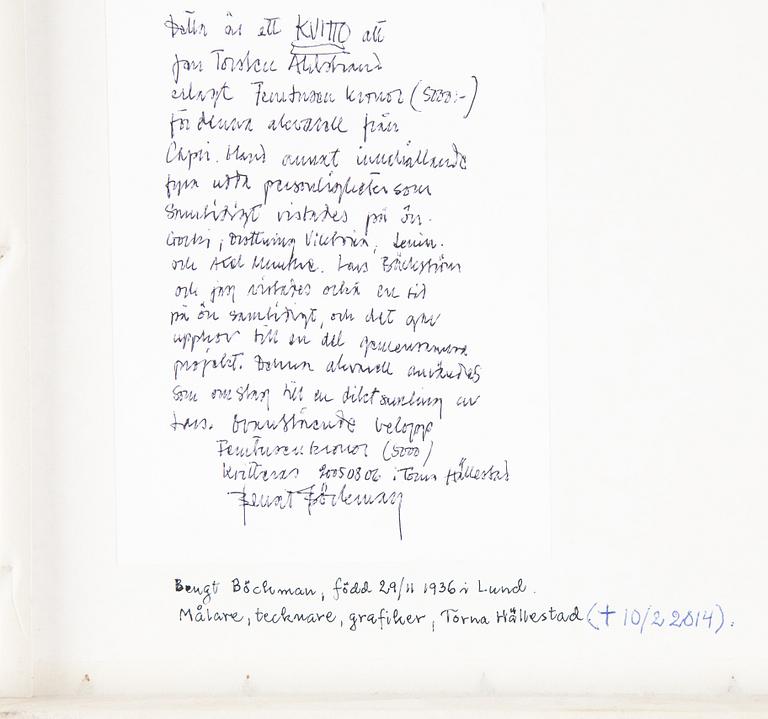 Detta är ett KVITTO att
Jan Torsten Ahlstrand
erlagt Femtusen kronor (5000:-)
för denna akvarell från
Capri. Bland annat innehållande
fyra udda personligheter som
samtidigt vistades på ön.
Gorki, Drottning Victoria, Lenin.
och Axel Munthe. Lars Bäckström
och jag vistades också en tid
på ön samtidigt, och det gav
upphov till en del gemensamma
projekt. Denna akvarell användes
som omslag till en diktsamling av
Lars. Ovanstående belopp
Femtusen kronor (5000)
kvitteras 20050806 i Torna Hällestad
Bengt Böckman
Bengt Böckman, född 29/11 1936 i Lund.
Målare, tecknare, grafiker, Torna Hällestad († 10/2 2014).